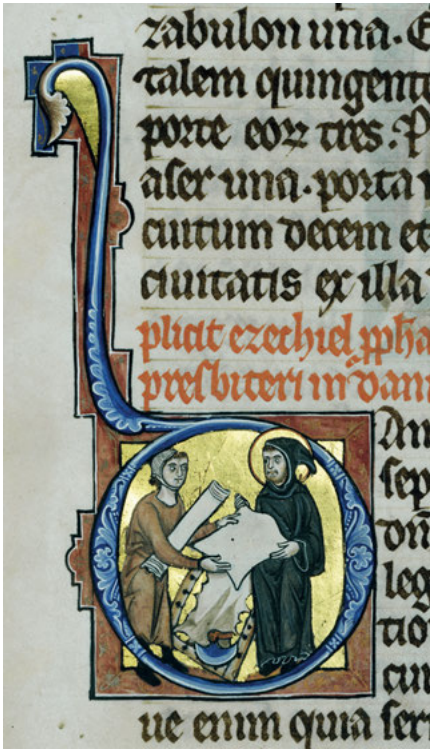 zabulon una. E
talem quingente
porte eorz tres. P
aser una. porta
cuitum decem et
ciuitatis ex illa
plicit ezechiel ppha
presbiteri in dani
An
sep
dom
leg
tio
cum
ue enim quia ser